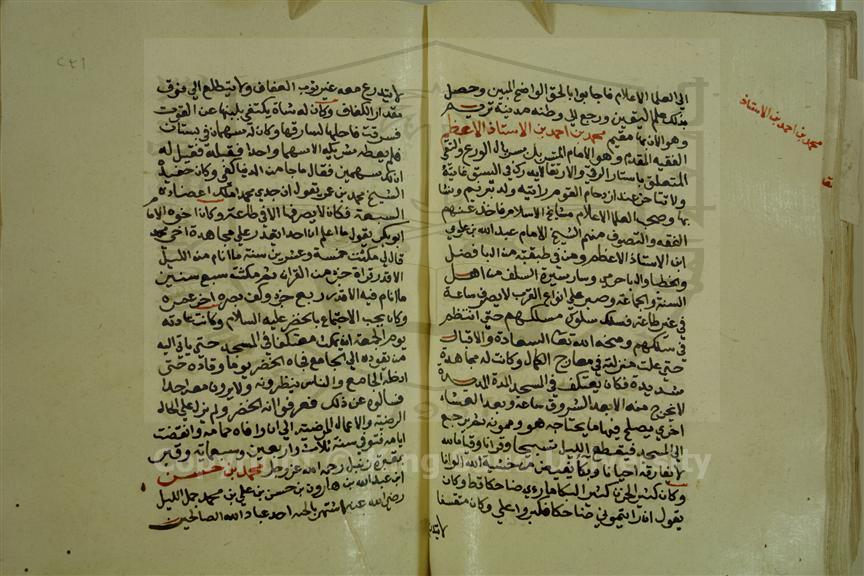 محمد بن احمد بن الاستاذ
الى العلما الاعلام فاجابوا بالحق الواضح المبين وحصل
بذلك علم اليقين ورجع الى وطنه مدينة تريم
وهو الان بها مقيم محمد بن احمد بن الاستاذ الاعظم
الفقيه المقدم وهو الامام المتسربل بسربال الورع والتقى
المتعلق باستار الرقى والارتقا لا يدركه في السبق غاية
ولا تتاخر عند ازدحام القوم راية ولد بتريم ونشا
بها وصحب العلما الاعلام مشايخ الاسلام فاخذ عنهم
الفقه والتصوف منهم الشيخ الامام عبد الله بن علوي
ابن الاستاذ الاعظم ومن في طبقته من ال بافضل
والخطبا وال باحرمي وسار سيرة السلف من اهل
السنة والجماعة وصبر على انواع القرب لا يصرف ساعة
في غير طاعة فسلك سلوك مسلكهم حتى انتظم
في سلكهم ومنحه الله تعا السعادة والاقبال
حتى علت منزلته في معارج الكمال وكانت له مجاهدة
شديدة فكان يعتكف في المسجد المدة المديدة
لا يخرج منه الا بعد الشروق ساعة وبعد العشاء
اخرى يصلح فيهما ما يحتاجه هو وممونه ثم يرجع
الى المسجد فيقطع الليل تسبيحا وقرانا وقياما لله
لا يفارقه احيانا وبكا يفيض من خشية الله الوانا
وكان كثير الحزن كثير البكا ما رءي ضاحكا قط وكان
يقول اذا رايتموني ضاحكا فكبروا علي وكان متقشفا
لا يتدرع معه غير ثوب العفاف ولا يتطلع الى فوق
مقدار الكفاف وكان له شاة يكتفي بلبنها عن القوت
فسرقت فاحلها لسارقها وكان له سهمان في بستان
فلم يعطه شريكه الا سهما واحدا فقبله فقيل له
ان لك سهمين فقال ما جا من الدنيا كفى وكان حفيده
الشيخ محمد بن عمر يقول ان جدي محمد ملك اعضاءه
السبعة فكان لا يصرفها الا في طاعة وكان اخوه الامام
ابو بكر يقول ما اعلم ان احدا يقدر على مجاهدة اخي محمد
قال لي مكثت خمسة وعشرين سنة ما انام من الليل
الا قدر قراة جزء من القران ثم مكثت سبع سنين
ما انام فيه الا قدر ربع جزء وكف بصره اخر عمره
وكان يحب الاجتماع بالخضر عليه السلام وكانت عادته
يوم الجمعة ان يمكث معتكفا في المسجد حتى ياتي اليه
من يقوده الى الجامع فجاه الخضر يوما وقاده حتى
ادخله الجامع والناس ينظرونه ولا يرون معه احدا
فسالوه عن ذلك فعرفوا انه الخضر ولم يزل على الحال
الرضية والاعمال المرضية الى ان وافاه حمامه وانقضت
ايامه فتوفي سنة ثلاث واربعين وسبعماية وقبر
بمقبرة زنبل رحمه الله عز وجل محمد بن حسن
ابن عبد الله بن هارون بن حسن بن علي بن محمد جمل الليل
رضي الله عنه اشتهر احد عباد الله الصالحين